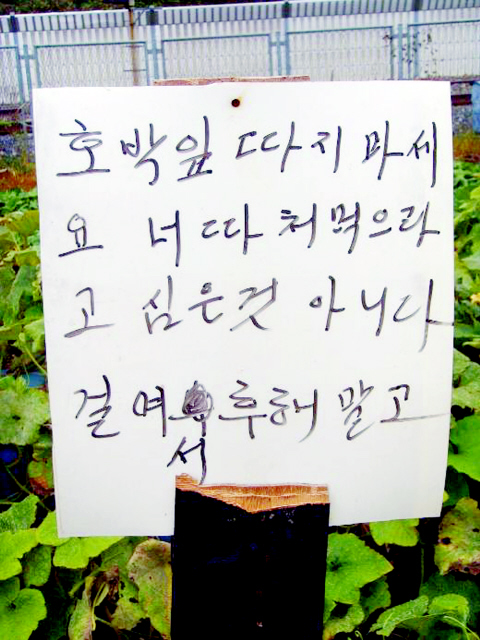 호박잎 따지 마세
요 너 따 처먹으라
고 심은것 아니다
걸여서 후해 말고